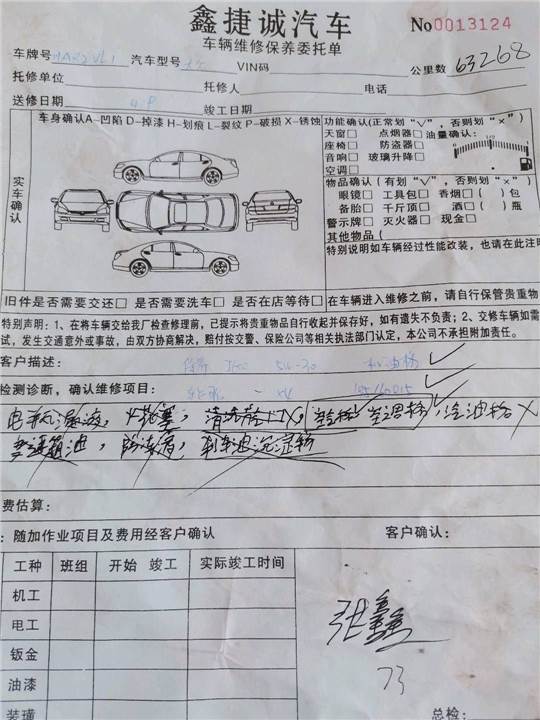 鑫捷诚汽车
车辆维修保养委托单
No0013124
车牌号 汽车型号 VIN码 公里数 63268
托修单位 托修人 电话
送修日期 竣工日期
车身确认A-凹陷 D-掉漆 H-划痕 L-裂纹 P-破损 X-锈蚀
功能确认(正常划"√", 否则划"×")
天窗□ 点烟器□ 油量确认:
座椅□ 防盗器□
音响□ 玻璃升降□
空调□
实车确认
物品确认(有划"√", 否则划"×")
眼镜□ 工具包□ 香烟□( )包
备胎□ 千斤顶□ 酒□( )瓶
警示牌□ 灭火器□ 现金□
其他物品(
特别说明如车辆经过性能改装,也请在此注明
旧件是否需要交还□ 是否需要洗车□ 是否在店等待□ 在车辆进入维修之前,请自行保管贵重物
特别声明:1、在将车辆交给我厂检查修理前,已提示将贵重物品自行收起并保存好,如有遗失不负责;2、交修车辆如需
试,发生交通意外或事故,由双方协商解决,赔付按交警、保险公司等相关执法部门认定,本公司不承担附加责任。
客户描述: 5W-30 机油格 ✓
检测诊断,确认维修项目: ✓
电瓶漏液, 火花塞, 清洗 空调格, 汽油格 X
变速箱油, 防冻液, 刹车油
费估算:
:随加作业项目及费用经客户确认 客户确认:
工种 班组 开始 竣工 实际竣工时间
机工
电工
钣金
油漆
装潢
张鑫
73
总检: